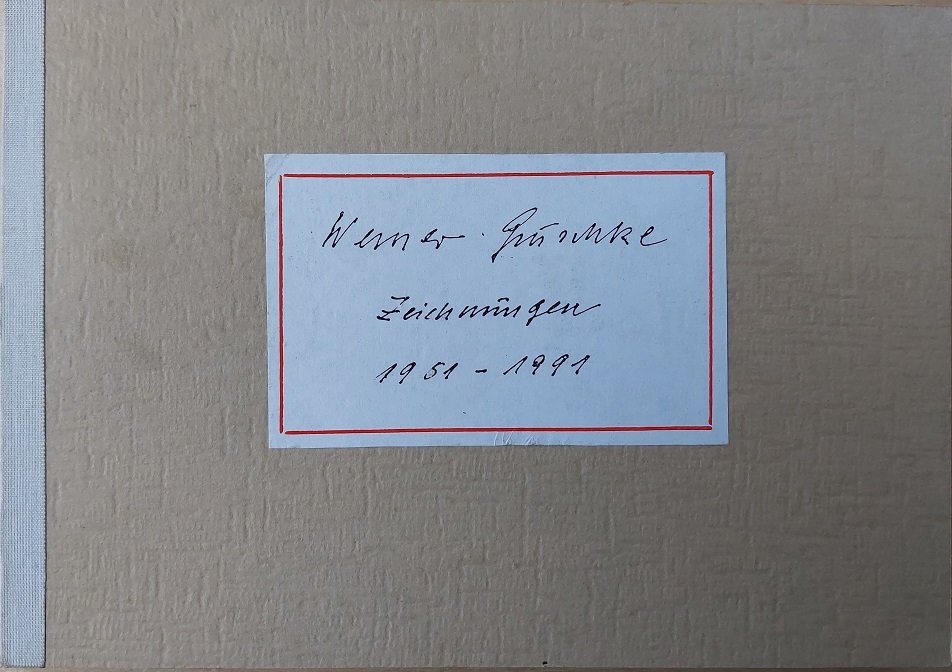 Werner Guschke
Zeichnungen
1951 - 1991